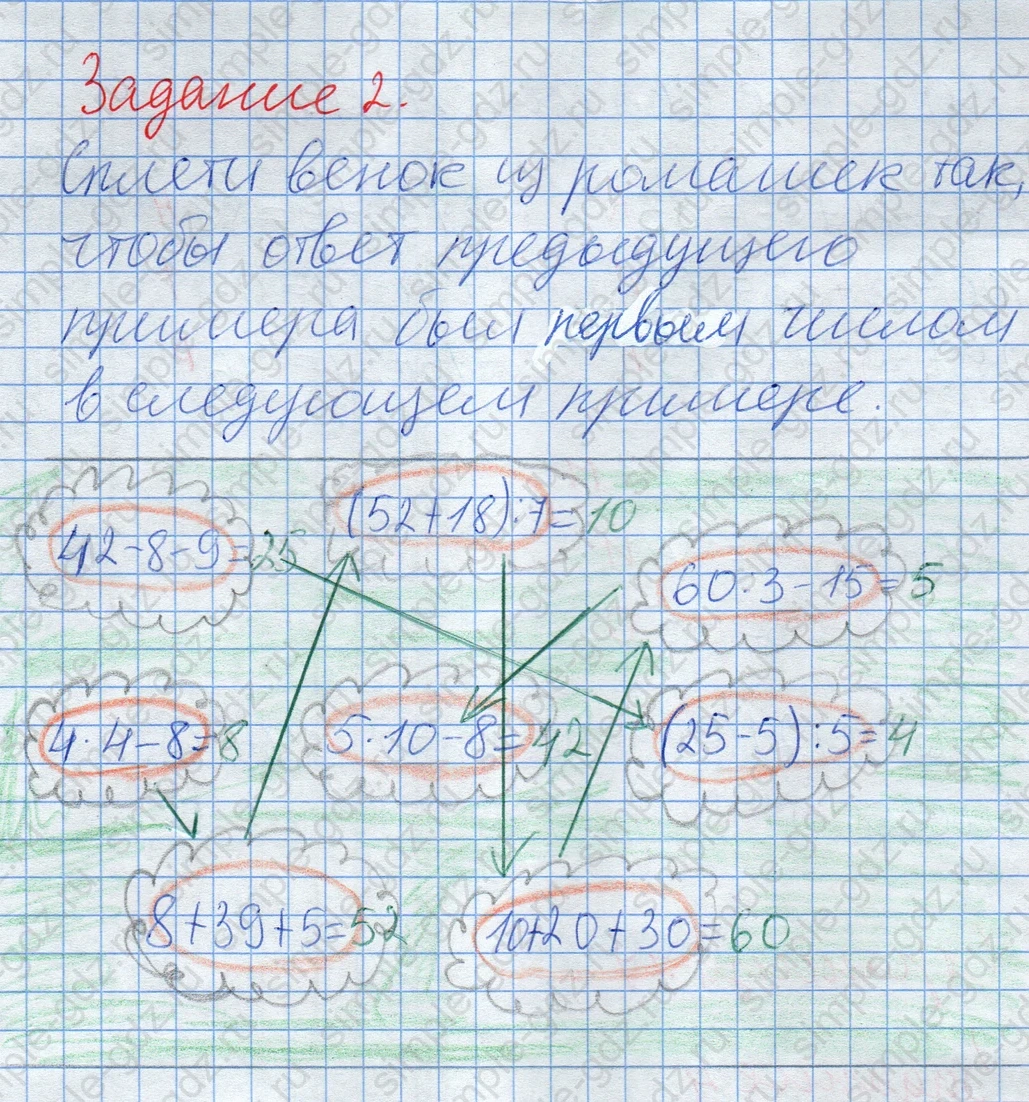 Задание 2.
Сплети венок из ромашек так,
чтобы ответ предыдущего
примера был первым числом
в следующем примере.
(52+18):7=10
42-8-9=25
60:3-15=5
4·4-8=8
5·10-8=42
(25-5):5=4
8+39+5=52
10+20+30=60
simple-gdz.ru